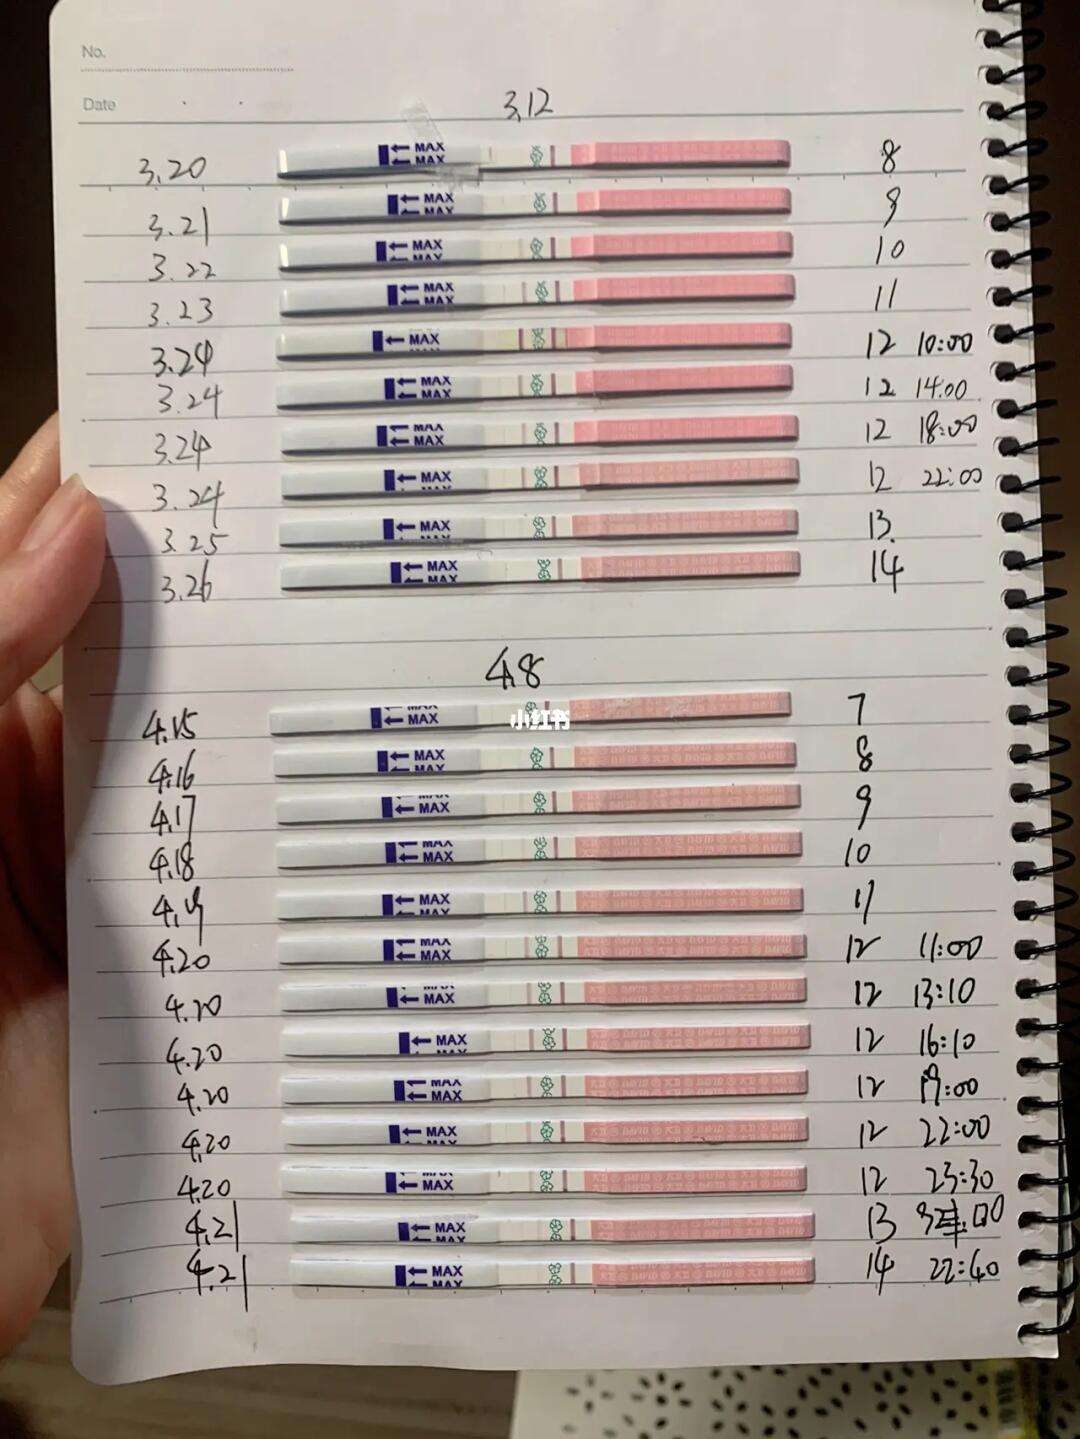 No.
Date
3.12
3.20 MAX MAX 8
3.21 MAX MAX 9
3.22 MAX MAX 10
3.23 MAX MAX 11
3.24 MAX 12 10:00
3.24 MAX MAX 12 14:00
3.24 MAX MAX 12 18:00
3.24 MAX 12 22:00
3.25 MAX MAX 13.
3.26 MAX MAX 14
4.8
4.15 MAX MAX 7
小红书
4.16 MAX MAX 8
4.17 MAX MAX 9
4.18 MAX MAX 10
4.19 MAX MAX 11
4.20 MAX MAX 12 11:00
4.20 MAX MAX 12 13:10
4.20 MAX MAX 12 16:10
4.20 MAX MAX 12 19:00
4.20 MAX MAX 12 22:00
4.20 MAX MAX 12 23:30
4.21 MAX MAX 13
4.21 MAX MAX 14 22:40